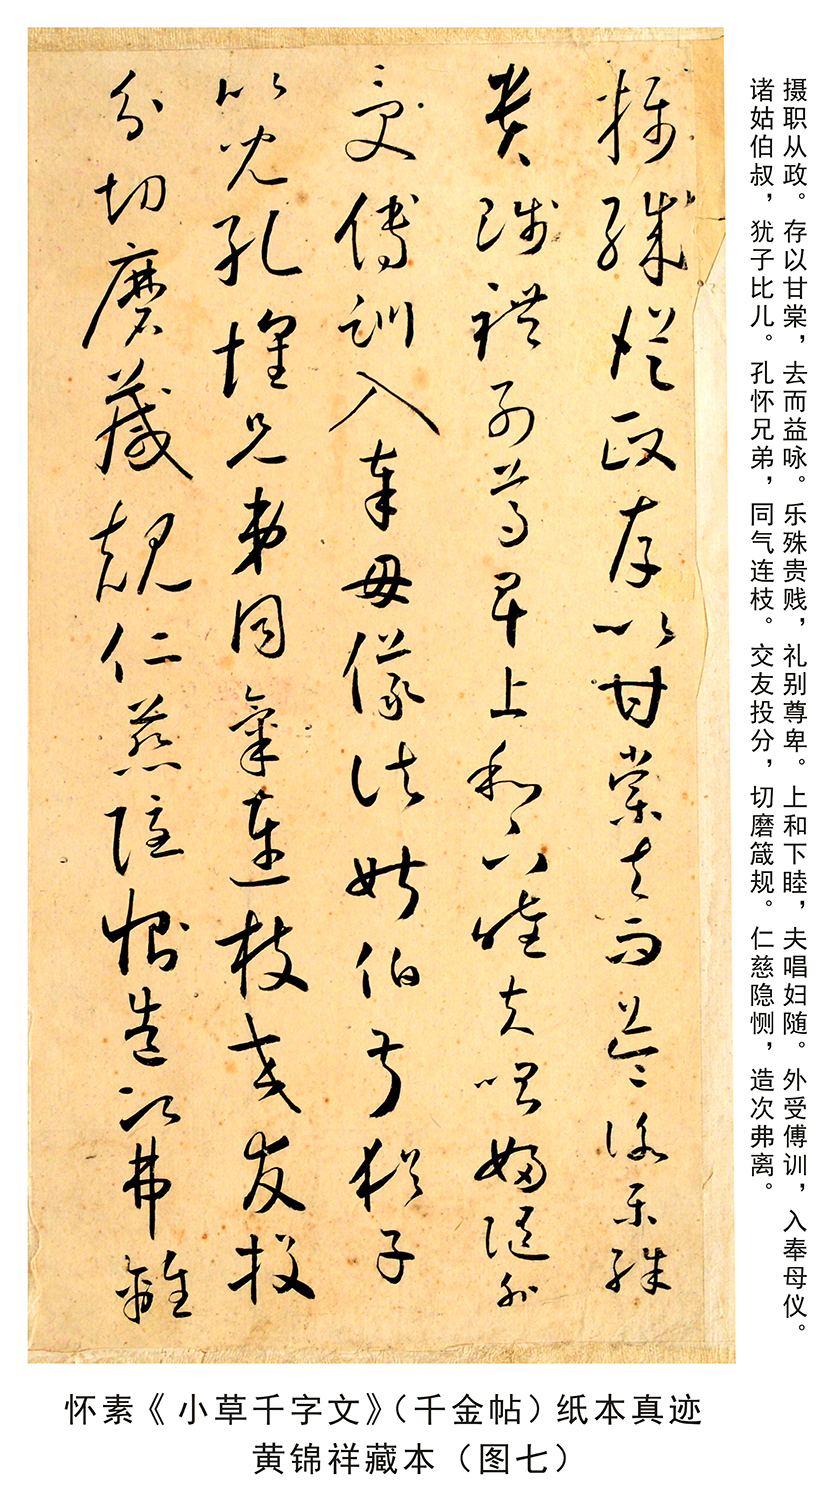 摄职从政。存以甘棠，去而益咏。乐殊贵贱，礼别尊卑。上和下睦，夫唱妇随。外受傅训，入奉母仪。
诸姑伯叔，犹子比儿。孔怀兄弟，同气连枝。交友投分，切磨箴规。仁慈隐恻，造次弗离。
攝職從政存以甘棠去而益詠樂殊
貴賤禮別尊卑上和下睦夫唱婦隨外
受傅訓入奉母儀諸姑伯叔猶子
比兒孔懷兄弟同氣連枝交友投
分切磨箴規仁慈隱惻造次弗離
怀素《小草千字文》（千金帖）纸本真迹
黄锦祥藏本（图七）